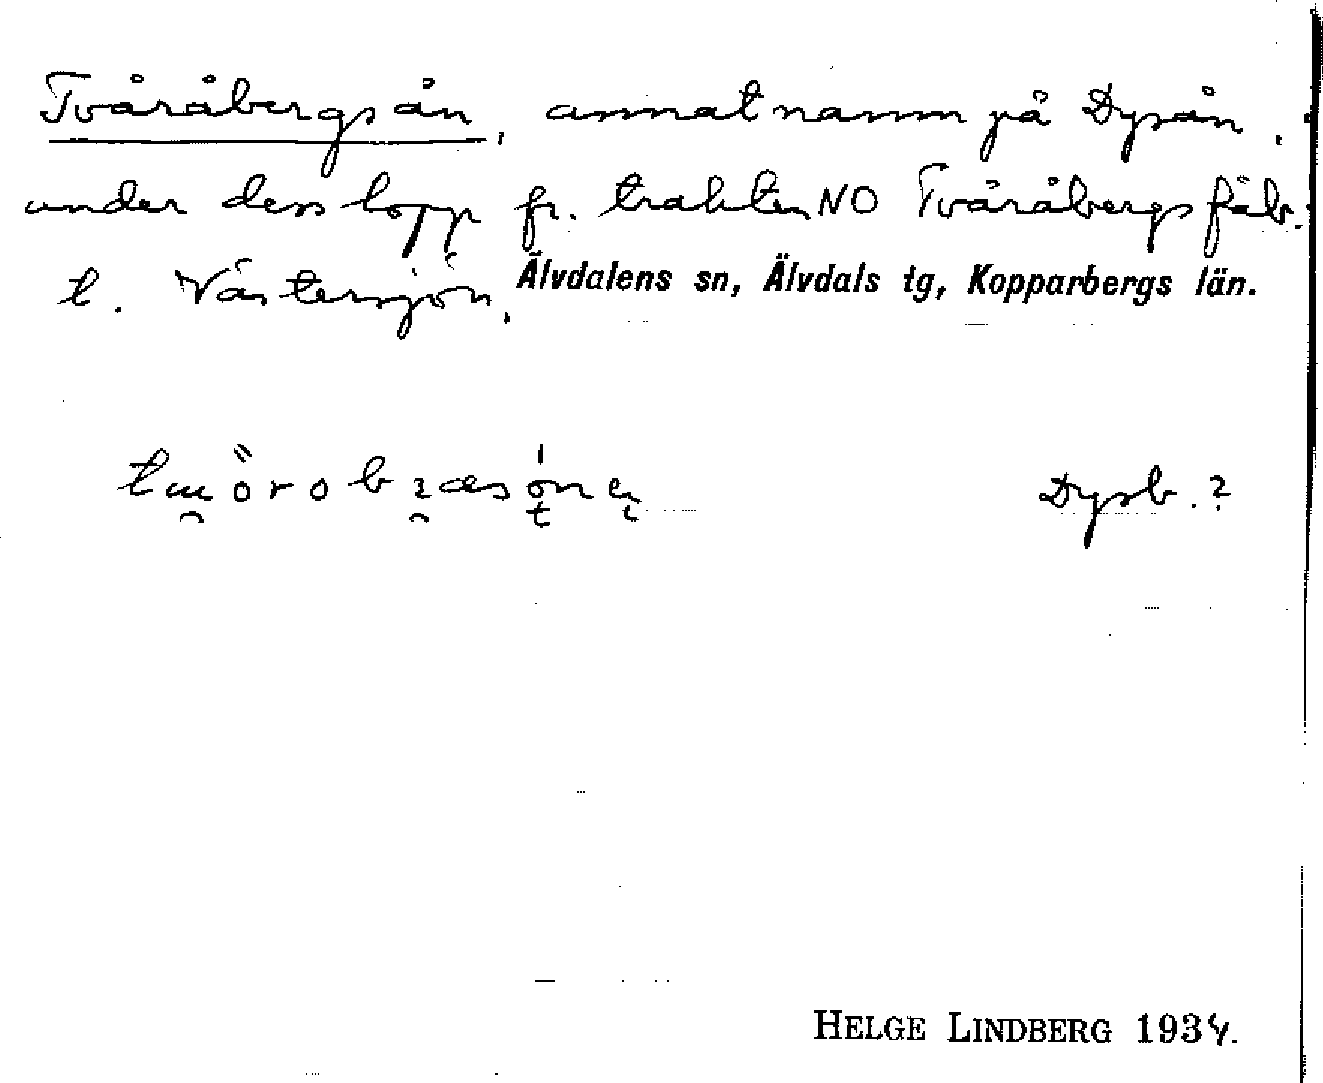 Tvåråbergsån, annat namn på Dysån,
under dess lopp fr. trakten NO Tvåråbergs fäb.
t. Västersjön, Älvdalens sn, Älvdals tg, Kopparbergs län.
Dysb. ?
HELGE LINDBERG 1934.